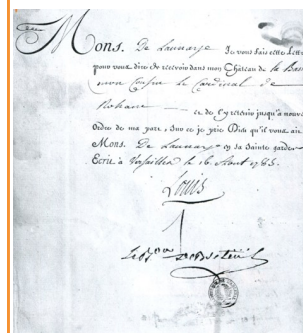 Mons. De Launay Je vous fais cette Lettre
pour vous dire de recevoir dans mon Château de la Bas
mon Cousin le Cardinal de
Rohan
et de l'y retenir jusqu'à nouvel
Ordre de ma part. Sur ce je prie Dieu qu'il vous ait
Mons. De Launay en sa Sainte garde
Ecrit à Versailles le 16 Aout 1785.
Louis